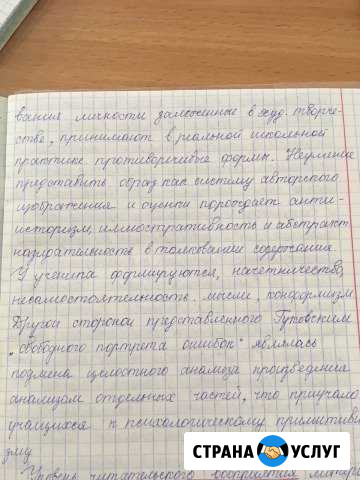 вания личности заложенные в худ. творче-
стве, принимают в реальной школьной
практике противоречивые формы. Неумение
представить образ как систему авторского
изображения и оценки порождает анти-
историзм, иллюстративность и абстракт.
назидательность в толковании содержания.
У ученика формируются, начетничество,
несамостоятельность мысли, конформизм.
Другой стороной представленного Гуковским
"свободного портрета ошибок" являлась
подмена целостного анализа произведения
анализом отдельных частей, что приучало
учащихся к психологическому примитиви
зму
Уровень читательского восприятия
СТРАНА УСЛУГ